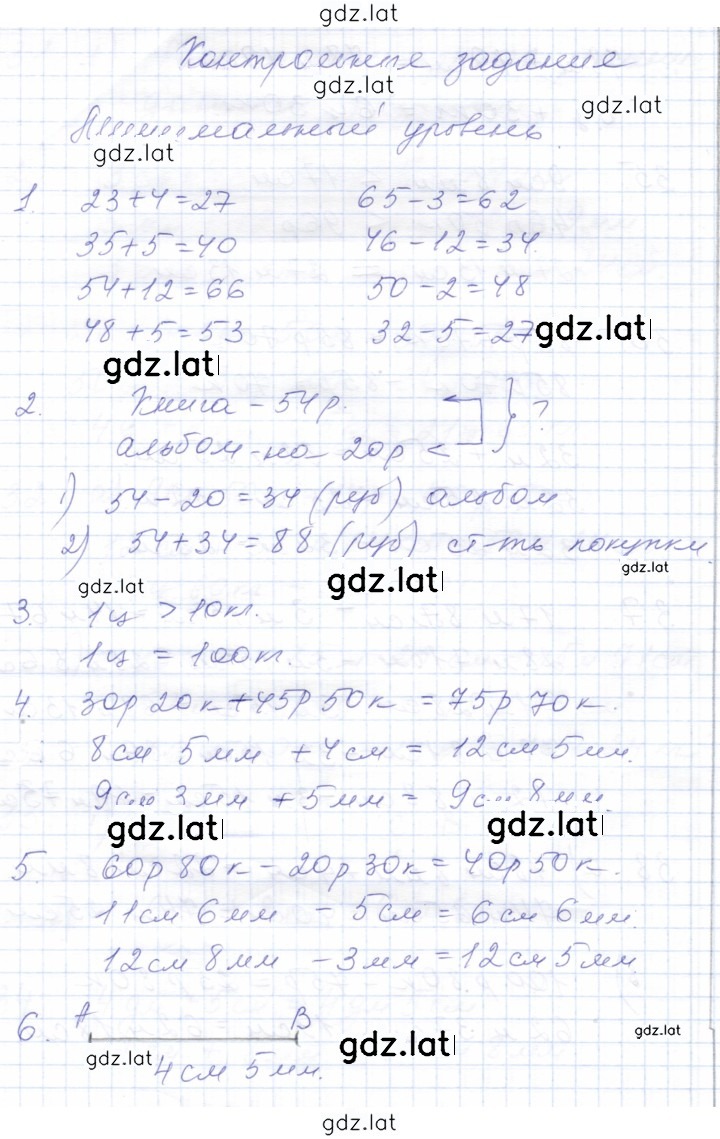 gdz.lat
Контрольные задания
gdz.lat
gdz.lat
Минимальный уровень
gdz.lat
1. 23+4=27 65-3=62
35+5=40 46-12=34.
54+12=66 50-2=48
48+5=53 32-5=27 gdz.lat
gdz.lat
2. Книга - 54р. ?
альбом - на 20р <
1) 54-20=34 (руб) альбом
2) 54+34=88 (руб) ст-ть покупки.
gdz.lat gdz.lat gdz.lat
3. 1ц > 10кг.
1ц = 100кг.
4. 30р 20к+45р 50к = 75р 70к.
8см 5мм + 4см = 12см 5мм.
9см 3мм + 5мм = 9см 8мм.
gdz.lat gdz.lat
5. 60р 80к - 20р 30к = 40р 50к.
11см 6мм - 5см = 6см 6мм.
12см 8мм - 3мм = 12см 5мм.
6. А В
gdz.lat gdz.lat gdz.lat
4см 5мм.
gdz.lat